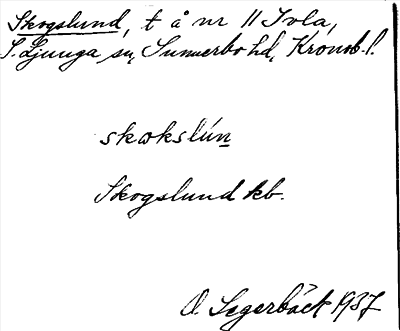 Skogslund, t å nr 11 Tvla,
S. Ljunga sn, Sunnerbo hd, Kronob. l.
skωkslún
Skogslund kb.
O. Lagerbäck 1937